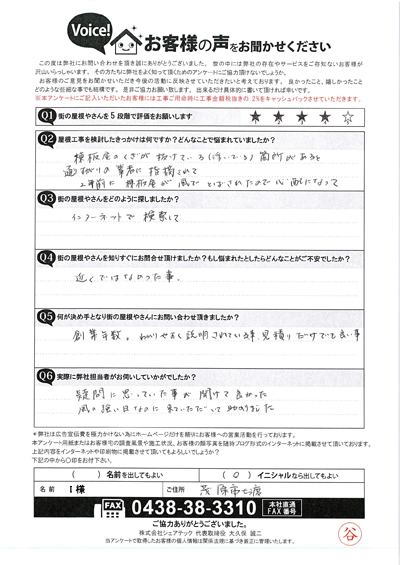 Voice!
お客様の声をお聞かせください
この度は弊社にお問い合わせを頂き誠にありがとうございました。世の中には弊社の存在やサービスをご存知ないお客様が
沢山いらっしゃいます。その方たちに弊社をよく知って頂くためのアンケートにご協力頂けないでしょうか。
お客様のご意見をお聞かせいただき今後の活動に反映させていただきたいと考えております。良かったこと、嬉しかったこと
どのような些細な事でも結構です。是非ご協力お願い致します。出来るだけ具体的に書いて頂ければ幸いです。
※本アンケートにご記入いただいたお客様には工事ご用命時に工事金額税抜きの 2%をキャッシュバックさせていただきます。
Q1 街の屋根やさんを5段階で評価をお願いします ★ ★ ★ ★ ☆
Q2 屋根工事を検討したきっかけは何ですか？どんなことで悩まれていましたか？
棟板金のくぎが抜けている(浮いている)箇所があると
通りがかりの業者に指摘されて
2年前に棟板金が風でとばされたので心配になって
Q3 街の屋根やさんをどのように探しましたか？
インターネットで検索して
Q4 街の屋根やさんを知りすぐにお問合せ頂けましたか？もし悩まれたとしたらどんなことがご不安でしたか？
近くではなかった事。
Q5 何が決め手となり街の屋根やさんにお問い合わせ頂きましたか？
創業年数。わかりやすく説明されている事 見積りだけでも良い事
Q6 実際に弊社担当者がお伺いしていかがでしたか？
疑問に思っていた事が聞けて良かった
風の強い日なのに来ていただいて助かりました
＊弊社は広告宣伝費を極力かけない為にホームページだけを頼りにお客様への営業活動を行っております。
本アンケート用紙またはお客様宅の調査風景や施工状況、お客様の顔写真を随時ブログ形式のインターネットに掲載させて頂いております。
上記内容をインターネットや印刷物に掲載させて頂いてもよろしいでしょうか？
下記の中から〇印をお付下さい。
( ) 名前を出してもよい ( ○ ) イニシャルなら出してもよい
名前 I 様 ご住所 茂原市七渡
FAX 0438-38-3310 本社直通 FAX 番号
ご協力ありがとうございました。
株式会社シェアテック 代表取締役 大久保 誠二
当アンケートで取得したお客様の個人情報は関係法規に基づき厳正に管理いたします。
谷